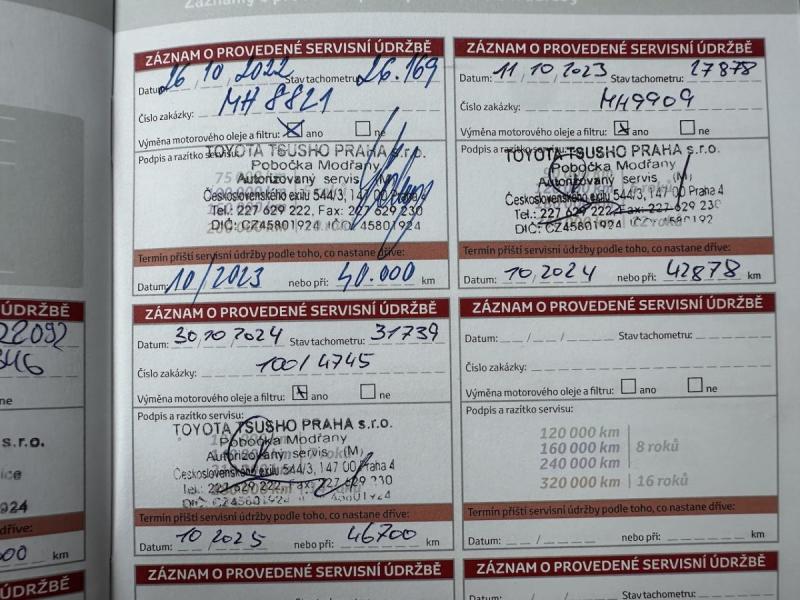 ZÁZNAM O PROVEDENÉ SERVISNÍ ÚDRŽBĚ
Datum: 26/10/2022 Stav tachometru: 26.169
Číslo zakázky: MH 8821
Výměna motorového oleje a filtru: ano ne
Podpis a razítko servisu:
TOYOTA TSUSHO PRAHA s.r.o.
Pobočka Modřany
Autorizovaný servis (M)
Československého exilu 544/3, 147 00 Praha 4
Tel.: 227 629 222, Fax: 227 629 230
DIČ: CZ45801924 IČO: 45801924
Termín příští servisní údržby podle toho, co nastane dříve:
Datum: 10/2023 nebo při: 40.000 km
ZÁZNAM O PROVEDENÉ SERVISNÍ ÚDRŽBĚ
Datum: 11,10,2023 Stav tachometru: 27878
Číslo zakázky: MH9909
Výměna motorového oleje a filtru: ano ne
Podpis a razítko servisu:
TOYOTA TSUSHO PRAHA s.r.o.
Pobočka Modřany
Autorizovaný servis (M)
Československého exilu 544/3, 147 00 Praha 4
Tel.: 227 629 222, Fax: 227 629 230
DIČ: CZ45801924
Termín příští servisní údržby podle toho, co nastane dříve:
Datum: 10,2024 nebo při: 42878 km
ÚDRŽBĚ
22092
346
ne
s.r.o.
924
dříve:
km
ÚDRŽBĚ
ZÁZNAM O PROVEDENÉ SERVISNÍ ÚDRŽBĚ
Datum: 30/10/2024 Stav tachometru: 31739
Číslo zakázky: 100/4745
Výměna motorového oleje a filtru: ano ne
Podpis a razítko servisu:
TOYOTA TSUSHO PRAHA s.r.o.
Pobočka Modřany
Autorizovaný servis (M)
Československého exilu 544/3, 147 00 Praha 4
Tel.: 227 629 222, Fax 227 629 230
DIČ: CZ45801924 45801924
Termín příští servisní údržby podle toho, co nastane dříve:
Datum: 10 2025 nebo při: 46700 km
ZÁZNAM O PROVEDENÉ SERVISNÍ ÚDRŽBĚ
Datum: / / Stav tachometru:
Číslo zakázky:
Výměna motorového oleje a filtru: ano ne
Podpis a razítko servisu:
120 000 km
160 000 km 8 roků
240 000 km
320 000 km 16 roků
Termín příští servisní údržby podle toho, co nastane dříve:
Datum: nebo při: km
ZÁZNAM O PROVEDENÉ SERVISNÍ ÚDRŽBĚ
ZÁZNAM O PROVEDENÉ SERVISNÍ ÚDRŽBĚ